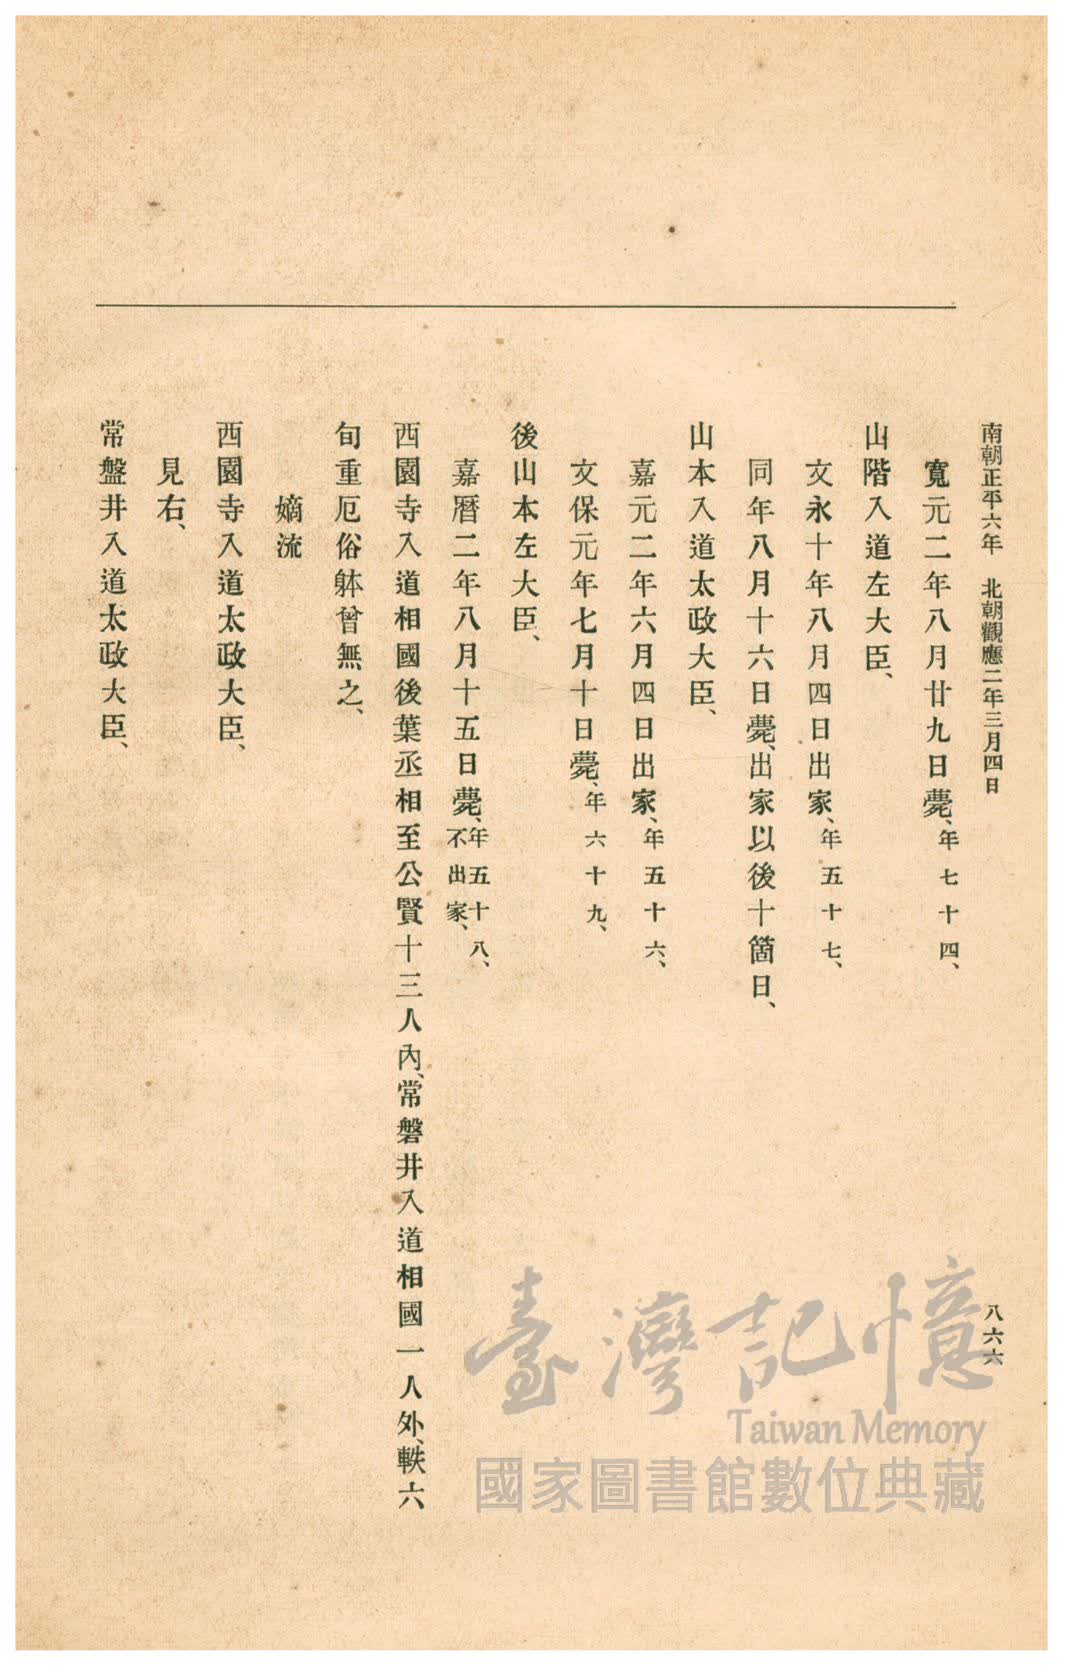 南朝正平六年　北朝觀應二年三月四日
八六六
寬元二年八月廿九日薨、年七十四、
山階入道左大臣、
文永十年八月四日出家、年五十七、
同年八月十六日薨、出家以後十箇日、
山本入道太政大臣、
嘉元二年六月四日出家、年五十六、
文保元年七月十日薨、年六十九、
後山本左大臣、
嘉曆二年八月十五日薨、年五十八、不出家、
西園寺入道相國後葉丞相至公賢十三人內、常磐井入道相國一人外、軼六
旬重厄俗躰曾無之、
嫡流
西園寺入道太政大臣、
見右、
常盤井入道太政大臣、
臺灣記憶
Taiwan Memory
國家圖書館數位典藏